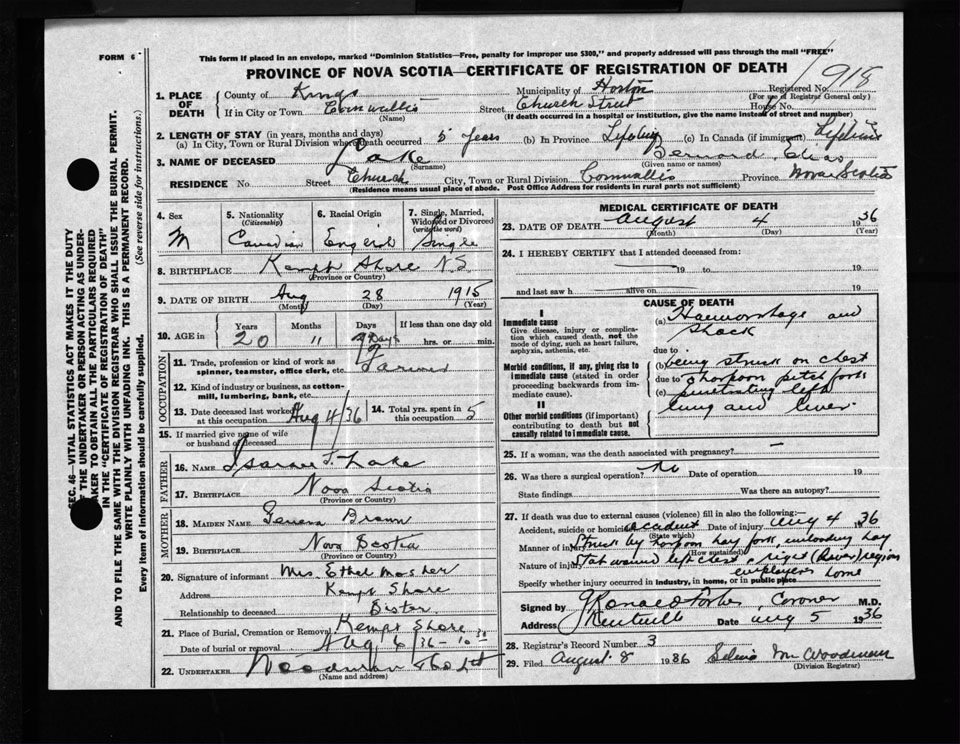 FORM 6
This form if placed in an envelope, marked "Dominion Statistics—Free, penalty for improper use $300," and properly addressed will pass through the mail "FREE"
PROVINCE OF NOVA SCOTIA—CERTIFICATE OF REGISTRATION OF DEATH
918
1. PLACE OF DEATH
County of Kings Municipality of Horton Registered No.
(For use of Registrar General only)
If in City or Town Cornwallis Street Church Street House No.
(Name) (If death occurred in a hospital or institution, give the name instead of street and number)
2. LENGTH OF STAY (in years, months and days)
(a) In City, Town or Rural Division where death occurred 5 years (b) In Province Lifetime (c) In Canada (if immigrant) Lifetime
3. NAME OF DECEASED Lake Bernard Elias
(Surname) (Given name or names)
RESIDENCE No. Street Church City, Town or Rural Division Cornwallis Province Nova Scotia
(Residence means usual place of abode. Post Office Address for residents in rural parts not sufficient)
SEC. 46—VITAL STATISTICS ACT MAKES IT THE DUTY
OF THE UNDERTAKER OR PERSON ACTING AS UNDER-
TAKER TO OBTAIN ALL THE PARTICULARS REQUIRED
IN THE "CERTIFICATE OF REGISTRATION OF DEATH"
AND TO FILE THE SAME WITH THE DIVISION REGISTRAR WHO SHALL ISSUE THE BURIAL PERMIT.
WRITE PLAINLY WITH UNFADING INK. THIS IS A PERMANENT RECORD.
Every item of information should be carefully supplied. (See reverse side for instructions.)
4. Sex M
5. Nationality (Citizenship) Canadian
6. Racial Origin English
7. Single, Married, Widowed or Divorced (write the word) Single
8. BIRTHPLACE Kempt Shore N.S.
(Province or Country)
9. DATE OF BIRTH Aug 28 1915
(Month) (Day) (Year)
10. AGE in Years 20 Months 11 Days If less than one day old hrs. or min.
OCCUPATION
11. Trade, profession or kind of work as spinner, teamster, office clerk, etc. Farmer
12. Kind of industry or business, as cotton-mill, lumbering, bank, etc.
13. Date deceased last worked at this occupation Aug 4/36
14. Total yrs. spent in this occupation 5
15. If married give name of wife or husband of deceased
FATHER
16. NAME Lake
17. BIRTHPLACE Nova Scotia
(Province or Country)
MOTHER
18. MAIDEN NAME Geneva Brown
19. BIRTHPLACE Nova Scotia
(Province or Country)
20. Signature of informant Mrs. Ethel Mosher
Address Kempt Shore
Relationship to deceased Sister
21. Place of Burial, Cremation or Removal Kempt Shore
Date of burial or removal Aug 6/36
22. UNDERTAKER Woodman
(Name and address)
MEDICAL CERTIFICATE OF DEATH
23. DATE OF DEATH August 4 1936
(Month) (Day) (Year)
24. I HEREBY CERTIFY that I attended deceased from:
19 to 19
and last saw h alive on 19
CAUSE OF DEATH
I
Immediate cause
Give disease, injury or complication which caused death, not the mode of dying, such as heart failure, asphyxia, asthenia, etc.
(a) Haemorrhage and shock
due to
Morbid conditions, if any, giving rise to immediate cause (stated in order proceeding backwards from immediate cause).
(b) being struck on chest
due to
(c) harpoon pitch fork penetrating left lung and liver.
II
Other morbid conditions (if important) contributing to death but not causally related to immediate cause.
25. If a woman, was the death associated with pregnancy? —
26. Was there a surgical operation? no Date of operation 19
State findings Was there an autopsy?
27. If death was due to external causes (violence) fill in also the following:—
Accident, suicide or homicide accident Date of injury Aug 4 1936
(State which)
Manner of injury Struck by harpoon hay fork, unloading hay
(How sustained)
Nature of injury Stab wound left chest & right (liver) region
employers home
Specify whether injury occurred in industry, in home, or in public place
Signed by Coroner M.D.
Address Kentville Date Aug 5 1936
28. Registrar's Record Number 3
29. Filed August 8 1936 Woodman
(Division Registrar)